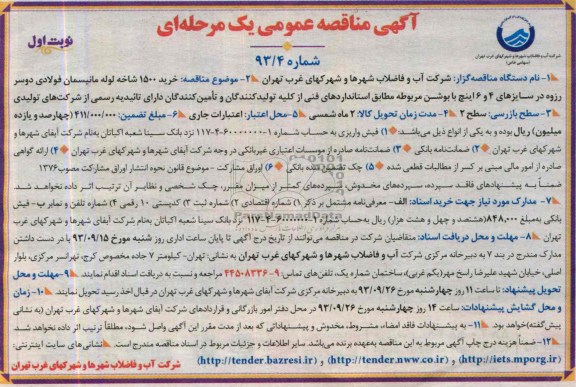 آگهی مناقصه عمومی یک مرحله‌ای
نوبت اول
شماره ۹۳/۴
شرکت آب و فاضلاب شهرها و شهرکهای غرب تهران
(سهامی خاص)
۱- نام دستگاه مناقصه‌گزار: شرکت آب و فاضلاب شهرها و شهرکهای غرب تهران ۲- موضوع مناقصه: خرید ۱۵۰۰ شاخه لوله مانیسمان فولادی دوسر
رزوه در سایزهای ۴ و ۶ اینچ با بوشن مربوطه مطابق استانداردهای فنی از کلیه تولیدکنندگان و تأمین‌کنندگان دارای تائیدیه رسمی از شرکت‌های تولیدی
۳- سطح بازرسی: سطح ۲ ۴- مدت زمان تحویل کالا: ۲ ماه شمسی ۵- محل اعتبار: اعتبارات جاری ۶- مبلغ تضمین: ۴۱۱/۰۰۰/۰۰۰ (چهارصد و یازده
میلیون) ریال بوده و به یکی از انواع ذیل می‌باشد: ۱) فیش واریزی به حساب شماره ۱-۶۰۰۰۰۰۰۰-۴-۱۱۷ نزد بانک سینا شعبه اکباتان به‌نام شرکت آبفای شهرها و
شهرکهای غرب تهران ۲) ضمانت‌نامه بانکی ۳) ضمانت‌نامه صادره از موسسات اعتباری غیربانکی در وجه شرکت آبفای شهرها و شهرکهای غرب تهران ۴) ارائه گواهی
صادره از امور مالی مبنی بر کسر از مطالبات قطعی شده ۵) چک تضمین شده بانکی ۶) اوراق مشارکت - موضوع قانون نحوه انتشار اوراق مشارکت مصوب ۱۳۷۶
ضمناً به پیشنهادهای فاقد سپرده، سپرده‌های مخدوش، سپرده‌های کمتر از میزان مقرر، چک شخصی و نظایر آن ترتیب اثر داده نخواهد شد
۷- مدارک مورد نیاز جهت خرید اسناد: الف- معرفی‌نامه مشتمل بر ذکر ۱) شماره اقتصادی ۲) شماره ثبت ۳) کدپستی ۱۰ رقمی ۴) شماره تلفن و نمابر ب- فیش
بانکی به‌مبلغ ۸۴۸/۰۰۰ (هشتصد و چهل و هشت هزار) ریال به‌حساب نزد بانک سینا شعبه اکباتان به‌نام شرکت آبفای شهرها و شهرکهای غرب
تهران ۸- مهلت و محل دریافت اسناد: متقاضیان شرکت در مناقصه می‌توانند از تاریخ درج آگهی تا پایان ساعت اداری روز شنبه مورخ ۹۳/۰۹/۱۵ با در دست داشتن
مدارک مندرج در بند ۷ به دبیرخانه مرکزی شرکت آب و فاضلاب شهرها و شهرکهای غرب تهران به نشانی: تهران- کیلومتر ۷ جاده مخصوص کرج، تهرانسر مرکزی، بلوار
اصلی، خیابان شهید علیرضا راسخ مهر (یکم غربی)، ساختمان شماره یک، تلفن‌های تماس: ۹-۴۴۵۰۸۳۳۶ مراجعه و نسبت به دریافت اسناد اقدام نمایند. ۹- مهلت و محل
تحویل پیشنهاد: تا ساعت ۱۱ روز چهارشنبه مورخ ۹۳/۰۹/۲۶ به دبیرخانه مرکزی شرکت آبفای شهرها و شهرکهای غرب تهران در قبال اخذ رسید تحویل نمایند. ۱۰- زمان
و محل گشایش پیشنهادات: ساعت ۱۴ روز چهارشنبه مورخ ۹۳/۰۹/۲۶ در محل دفتر امور بازرگانی و قراردادهای شرکت آبفای شهرها و شهرکهای غرب تهران (به نشانی
پیش‌گفته) خواهد بود. ۱۱- به پیشنهادات فاقد امضاء، مشروط، مخدوش و پیشنهاداتی که بعد از مدت مقرر این آگهی واصل شود، مطلقاً ترتیب اثر داده نخواهد شد
۱۲- ضمناً هزینه درج چاپ آگهی مربوط به این مناقصه به‌عهده برنده می‌باشد. سایر اطلاعات و جزئیات مربوط در اسناد مناقصه مندرج است. نشانی‌های سایت اینترنتی:
(http://iets.mporg.ir) و (http://tender.nww.co.ir) و (http://tender.bazresi.ir)
شرکت آب و فاضلاب شهرها و شهرکهای غرب تهران